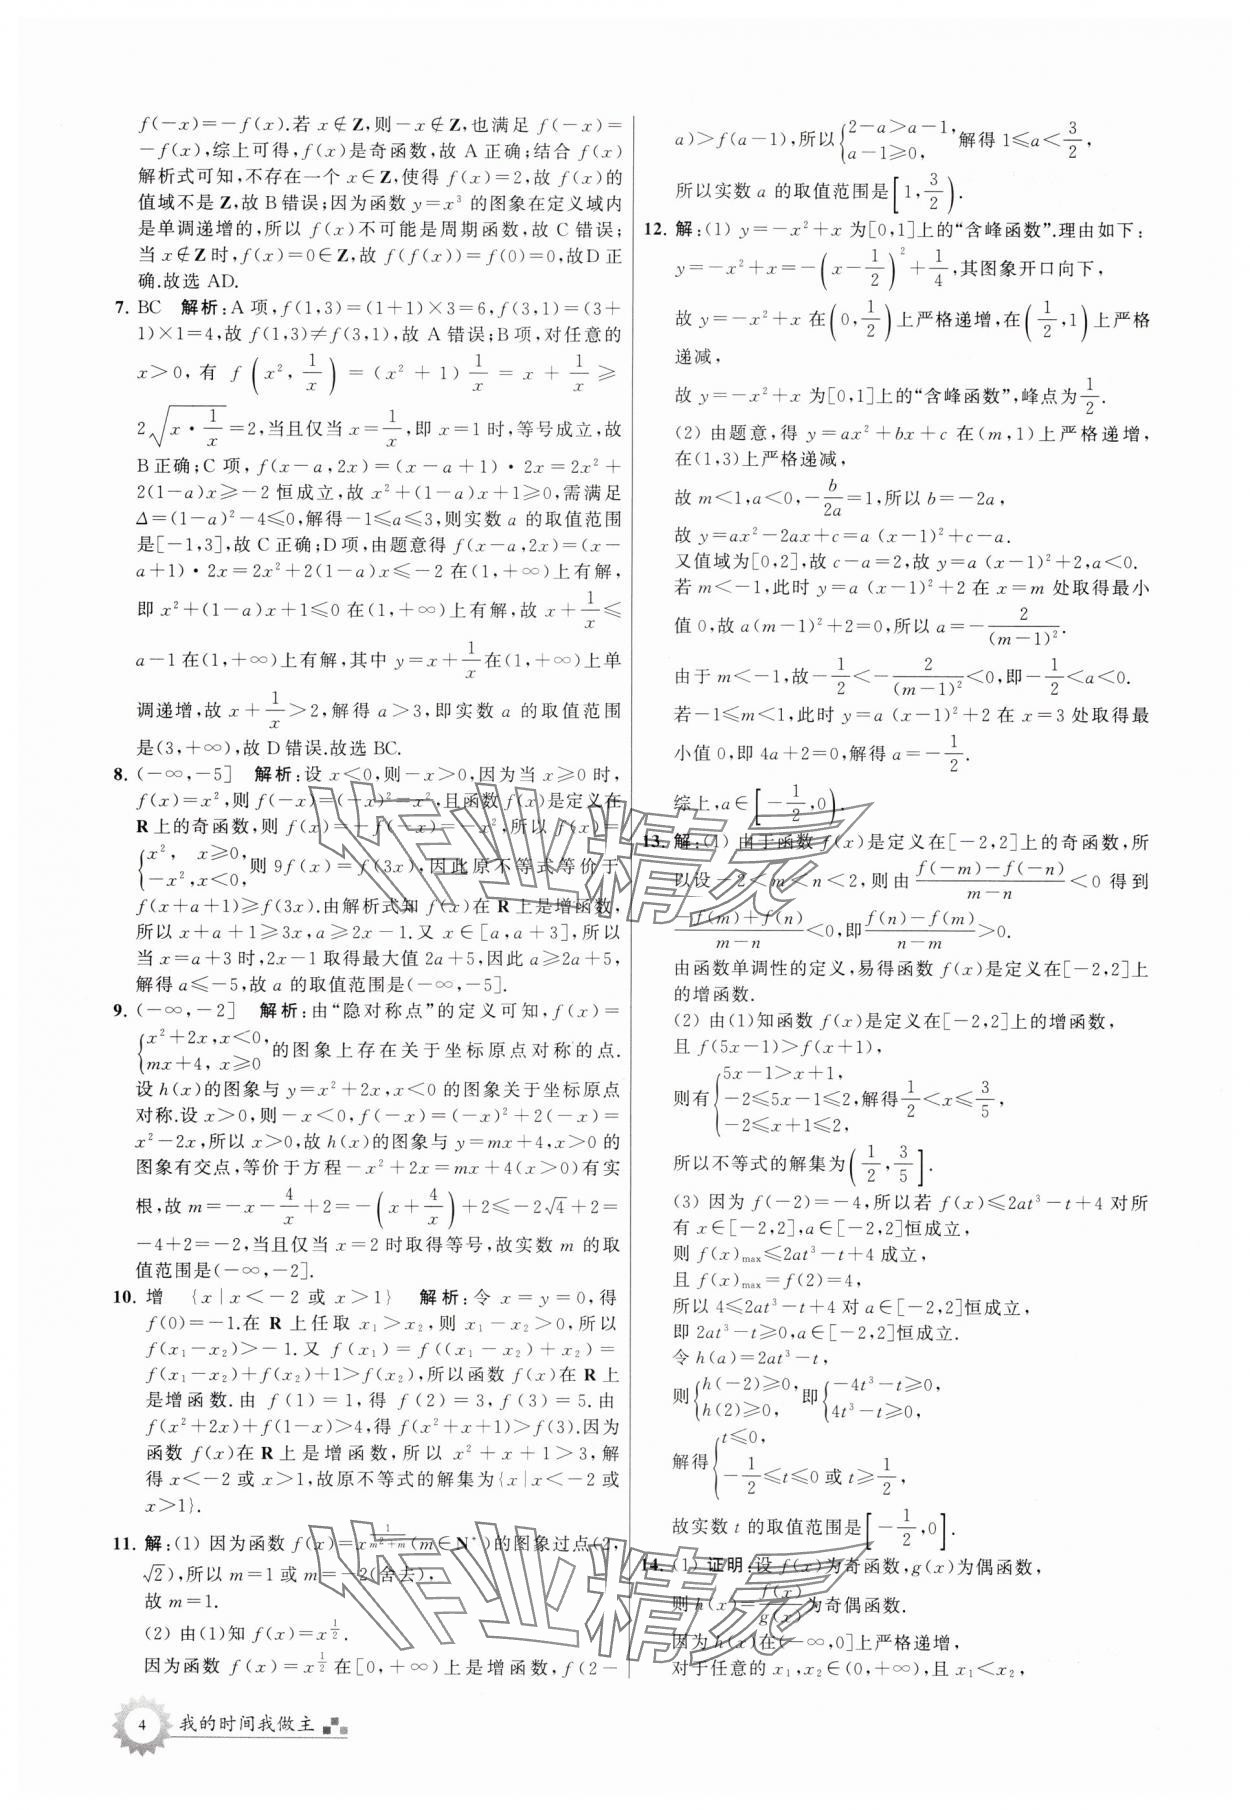 f(－x)＝－f(x).若 x∉Z,则－x∉Z,也满足 f(－x)＝
－f(x),综上可得,f(x)是奇函数,故 A 正确;结合 f(x)
解析式可知,不存在一个 x∈Z,使得 f(x)＝2,故 f(x)的
值域不是 Z,故 B 错误;因为函数 y＝x³ 的图象在定义域内
是单调递增的,所以 f(x)不可能是周期函数,故 C 错误;
当 x∉Z 时,f(x)＝0∈Z,故 f(f(x))＝f(0)＝0,故D 正
确.故选 AD.
7. BC 解析:A 项,f(1,3)＝(1＋1)×3＝6,f(3,1)＝(3＋
1)×1＝4,故 f(1,3)≠f(3,1),故 A 错误;B 项,对任意的
x＞0,有 f(x²,1/x)＝(x²＋1)1/x＝x＋1/x≥
2√(x·1/x)＝2,当且仅当 x＝1/x,即 x＝1 时,等号成立,故
B 正确;C 项,f(x－a,2x)＝(x－a＋1)·2x＝2x²＋
2(1－a)x≥－2 恒成立,故 x²＋(1－a)x＋1≥0,需满足
Δ＝(1－a)²－4≤0,解得－1≤a≤3,则实数 a 的取值范围
是[－1,3],故 C 正确;D 项,由题意得 f(x－a,2x)＝(x－
a＋1)·2x＝2x²＋2(1－a)x≤－2 在(1,＋∞)上有解,
即 x²＋(1－a)x＋1≤0 在(1,＋∞)上有解,故 x＋1/x≤
a－1 在(1,＋∞)上有解,其中 y＝x＋1/x在(1,＋∞)上单
调递增,故 x＋1/x＞2,解得 a＞3,即实数 a 的取值范围
是(3,＋∞),故 D 错误.故选 BC.
8. (－∞,－5] 解析:设 x＜0,则－x＞0,因为当 x≥0 时,
f(x)＝x²,则 f(－x)＝(－x)²＝x²,且函数 f(x)是定义在
R 上的奇函数,则 f(x)＝－f(－x)＝－x²,所以 f(x)＝
{x², x≥0, －x²,x＜0,则 9f(x)＝f(3x),因此原不等式等价于
f(x＋a＋1)≥f(3x).由解析式知 f(x)在 R 上是增函数,
所以 x＋a＋1≥3x,a≥2x－1.又 x∈[a,a＋3],所以
当 x＝a＋3 时,2x－1 取得最大值 2a＋5,因此 a≥2a＋5,
解得 a≤－5,故 a 的取值范围是(－∞,－5].
9. (－∞,－2] 解析:由“隐对称点”的定义可知,f(x)＝
{x²＋2x,x＜0, mx＋4, x≥0 的图象上存在关于坐标原点对称的点.
设 h(x)的图象与 y＝x²＋2x,x＜0 的图象关于坐标原点
对称.设 x＞0,则－x＜0,f(－x)＝(－x)²＋2(－x)＝
x²－2x,所以 x＞0,故 h(x)的图象与 y＝mx＋4,x＞0 的
图象有交点,等价于方程－x²＋2x＝mx＋4(x＞0)有实
根,故 m＝－x－4/x＋2＝－(x＋4/x)＋2≤－2√4＋2＝
－4＋2＝－2,当且仅当 x＝2 时取得等号,故实数 m 的取
值范围是(－∞,－2].
10. 增 {x|x＜－2 或 x＞1} 解析:令 x＝y＝0,得
f(0)＝－1.在 R 上任取 x₁＞x₂,则 x₁－x₂＞0,所以
f(x₁－x₂)＞－1.又 f(x₁)＝f((x₁－x₂)＋x₂)＝
f(x₁－x₂)＋f(x₂)＋1＞f(x₂),所以函数 f(x)在 R 上
是增函数.由 f(1)＝1,得 f(2)＝3,f(3)＝5.由
f(x²＋2x)＋f(1－x)＞4,得 f(x²＋x＋1)＞f(3).因为
函数 f(x)在 R 上是增函数,所以 x²＋x＋1＞3,解
得 x＜－2 或 x＞1,故原不等式的解集为{x|x＜－2 或
x＞1}.
11. 解:(1) 因为函数 f(x)＝x^(1/(m²＋m))(m∈N*)的图象过点(2,
√2),所以 m＝1 或 m＝－2(舍去),
故 m＝1.
(2) 由(1)知 f(x)＝x^(1/2).
因为函数 f(x)＝x^(1/2) 在[0,＋∞)上是增函数,f(2－
4 我的时间我做主
a)＞f(a－1),所以{2－a＞a－1, a－1≥0, 解得 1≤a＜3/2,
所以实数 a 的取值范围是[1,3/2).
12. 解:(1) y＝－x²＋x 为[0,1]上的“含峰函数”.理由如下:
y＝－x²＋x＝－(x－1/2)²＋1/4,其图象开口向下,
故 y＝－x²＋x 在(0,1/2)上严格递增,在(1/2,1)上严格
递减,
故 y＝－x²＋x 为[0,1]上的“含峰函数”,峰点为1/2.
(2) 由题意,得 y＝ax²＋bx＋c 在(m,1)上严格递增,
在(1,3)上严格递减,
故 m＜1,a＜0,－b/2a＝1,所以 b＝－2a,
故 y＝ax²－2ax＋c＝a(x－1)²＋c－a.
又值域为[0,2],故 c－a＝2,故 y＝a(x－1)²＋2,a＜0.
若 m＜－1,此时 y＝a(x－1)²＋2 在 x＝m 处取得最小
值 0,故 a(m－1)²＋2＝0,所以 a＝－2/(m－1)².
由于 m＜－1,故－1/2＜－2/(m－1)²＜0,即－1/2＜a＜0.
若－1≤m＜1,此时 y＝a(x－1)²＋2 在 x＝3 处取得最
小值 0,即 4a＋2＝0,解得 a＝－1/2.
综上,a∈[－1/2,0).
13. 解:(1) 由于函数 f(x)是定义在[－2,2]上的奇函数,所
以设－2＜m＜n＜2,则由(f(－m)－f(－n))/(m－n)＜0 得到
(－f(m)＋f(n))/(m－n)＜0,即(f(n)－f(m))/(n－m)＞0.
由函数单调性的定义,易得函数 f(x)是定义在[－2,2]上
的增函数.
(2) 由(1)知函数 f(x)是定义在[－2,2]上的增函数,
且 f(5x－1)＞f(x＋1),
则有{5x－1＞x＋1, －2≤5x－1≤2, －2≤x＋1≤2,解得1/2＜x≤3/5,
所以不等式的解集为(1/2,3/5].
(3) 因为 f(－2)＝－4,所以若 f(x)≤2at³－t＋4 对所
有 x∈[－2,2],a∈[－2,2]恒成立,
则 f(x)max≤2at³－t＋4 成立,
且 f(x)max＝f(2)＝4,
所以 4≤2at³－t＋4 对 a∈[－2,2]恒成立,
即 2at³－t≥0,a∈[－2,2]恒成立.
令 h(a)＝2at³－t,
则{h(－2)≥0, h(2)≥0, 即{－4t³－t≥0, 4t³－t≥0,
解得{t≤0, －1/2≤t≤0 或 t≥1/2,
故实数 t 的取值范围是[－1/2,0].
14. (1) 证明:设 f(x)为奇函数,g(x)为偶函数,
则 h(x)＝f(x)/g(x)为奇偶函数.
因为 h(x)在(－∞,0]上严格递增,
对于任意的 x₁,x₂∈(0,＋∞),且 x₁＜x₂,
作业精灵
作业精灵